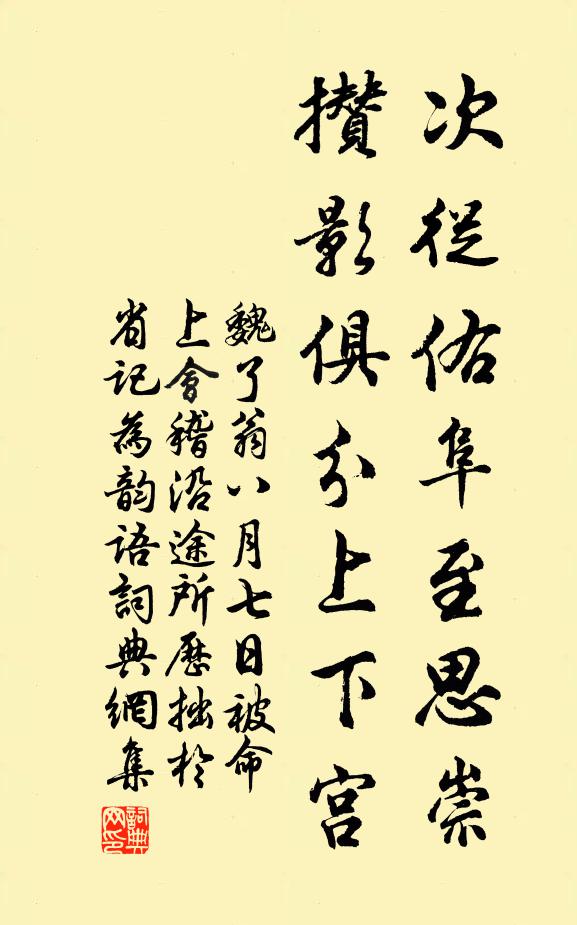 次從佑阜至思崇
攅影俱分上下宮
魏了翁八月七日被命
上會稽沿途所歷拙於
省記為韵語詞典網集
詞典网印